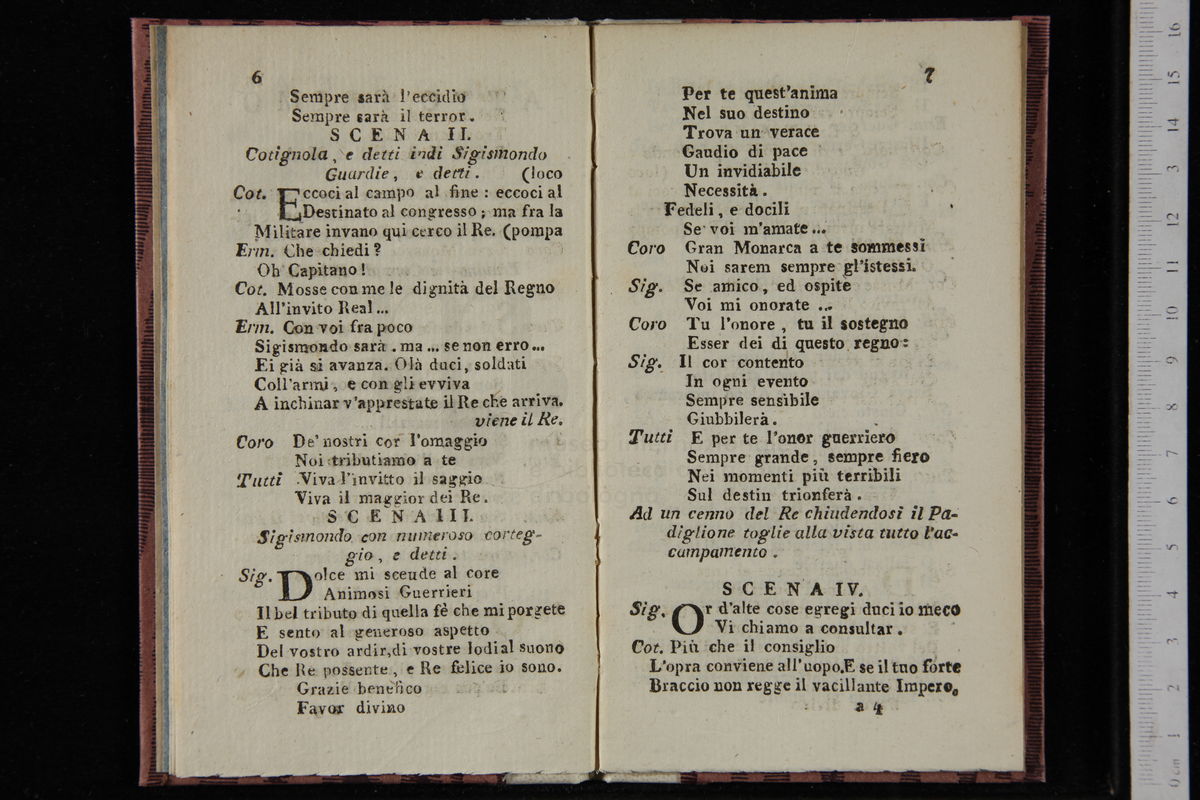 6
Sempre sarà l'eccidio
Sempre sarà il terror.
SCENA II.
Cotignola, e detti indi Sigismondo
Guardie, e detti. (loco
Cot. Eccoci al campo al fine: eccoci al
Destinato al congresso; ma fra la
Militare invano qui cerco il Re. (pompa
Erm. Che chiedi?
Oh Capitano!
Cot. Mosse con me le dignità del Regno
All'invito Real...
Erm. Con voi fra poco
Sigismondo sarà. ma... se non erro...
Ei già si avanza. Olà duci, soldati
Coll'armi, e con gli evviva
A inchinar v'apprestate il Re che arriva.
viene il Re.
Coro De' nostri cor l'omaggio
Noi tributiamo a te
Tutti Viva l'invitto il saggio
Viva il maggior dei Re.
SCENA III.
Sigismondo con numeroso corteg-
gio, e detti.
Sig. Dolce mi scende al core
Animosi Guerrieri
Il bel tributo di quella fè che mi porgete
E sento al generoso aspetto
Del vostro ardir,di vostre lodi al suono
Che Re possente, e Re felice io sono.
Grazie benefico
Favor divino
7
Per te quest'anima
Nel suo destino
Trova un verace
Gaudio di pace
Un invidiabile
Necessità.
Fedeli, e docili
Se voi m'amate...
Coro Gran Monarca a te sommessi
Noi sarem sempre gl'istessi.
Sig. Se amico, ed ospite
Voi mi onorate ...
Coro Tu l'onore, tu il sostegno
Esser dei di questo regno:
Sig. Il cor contento
In ogni evento
Sempre sensibile
Giubbilerà.
Tutti E per te l'onor guerriero
Sempre grande, sempre fiero
Nei momenti più terribili
Sul destin trionferà.
Ad un cenno del Re chiudendosi il Pa-
diglione toglie alla vista tutto l'ac-
campamento.
SCENA IV.
Sig. Or d'alte cose egregi duci io meco
Vi chiamo a consultar.
Cot. Più che il consiglio
L'opra conviene all'uopo.E se il tuo forte
Braccio non regge il vacillante Impero,
a 4
0 cm 1 2 3 4 5 6 7 8 9 10 11 12 13 14 15 16